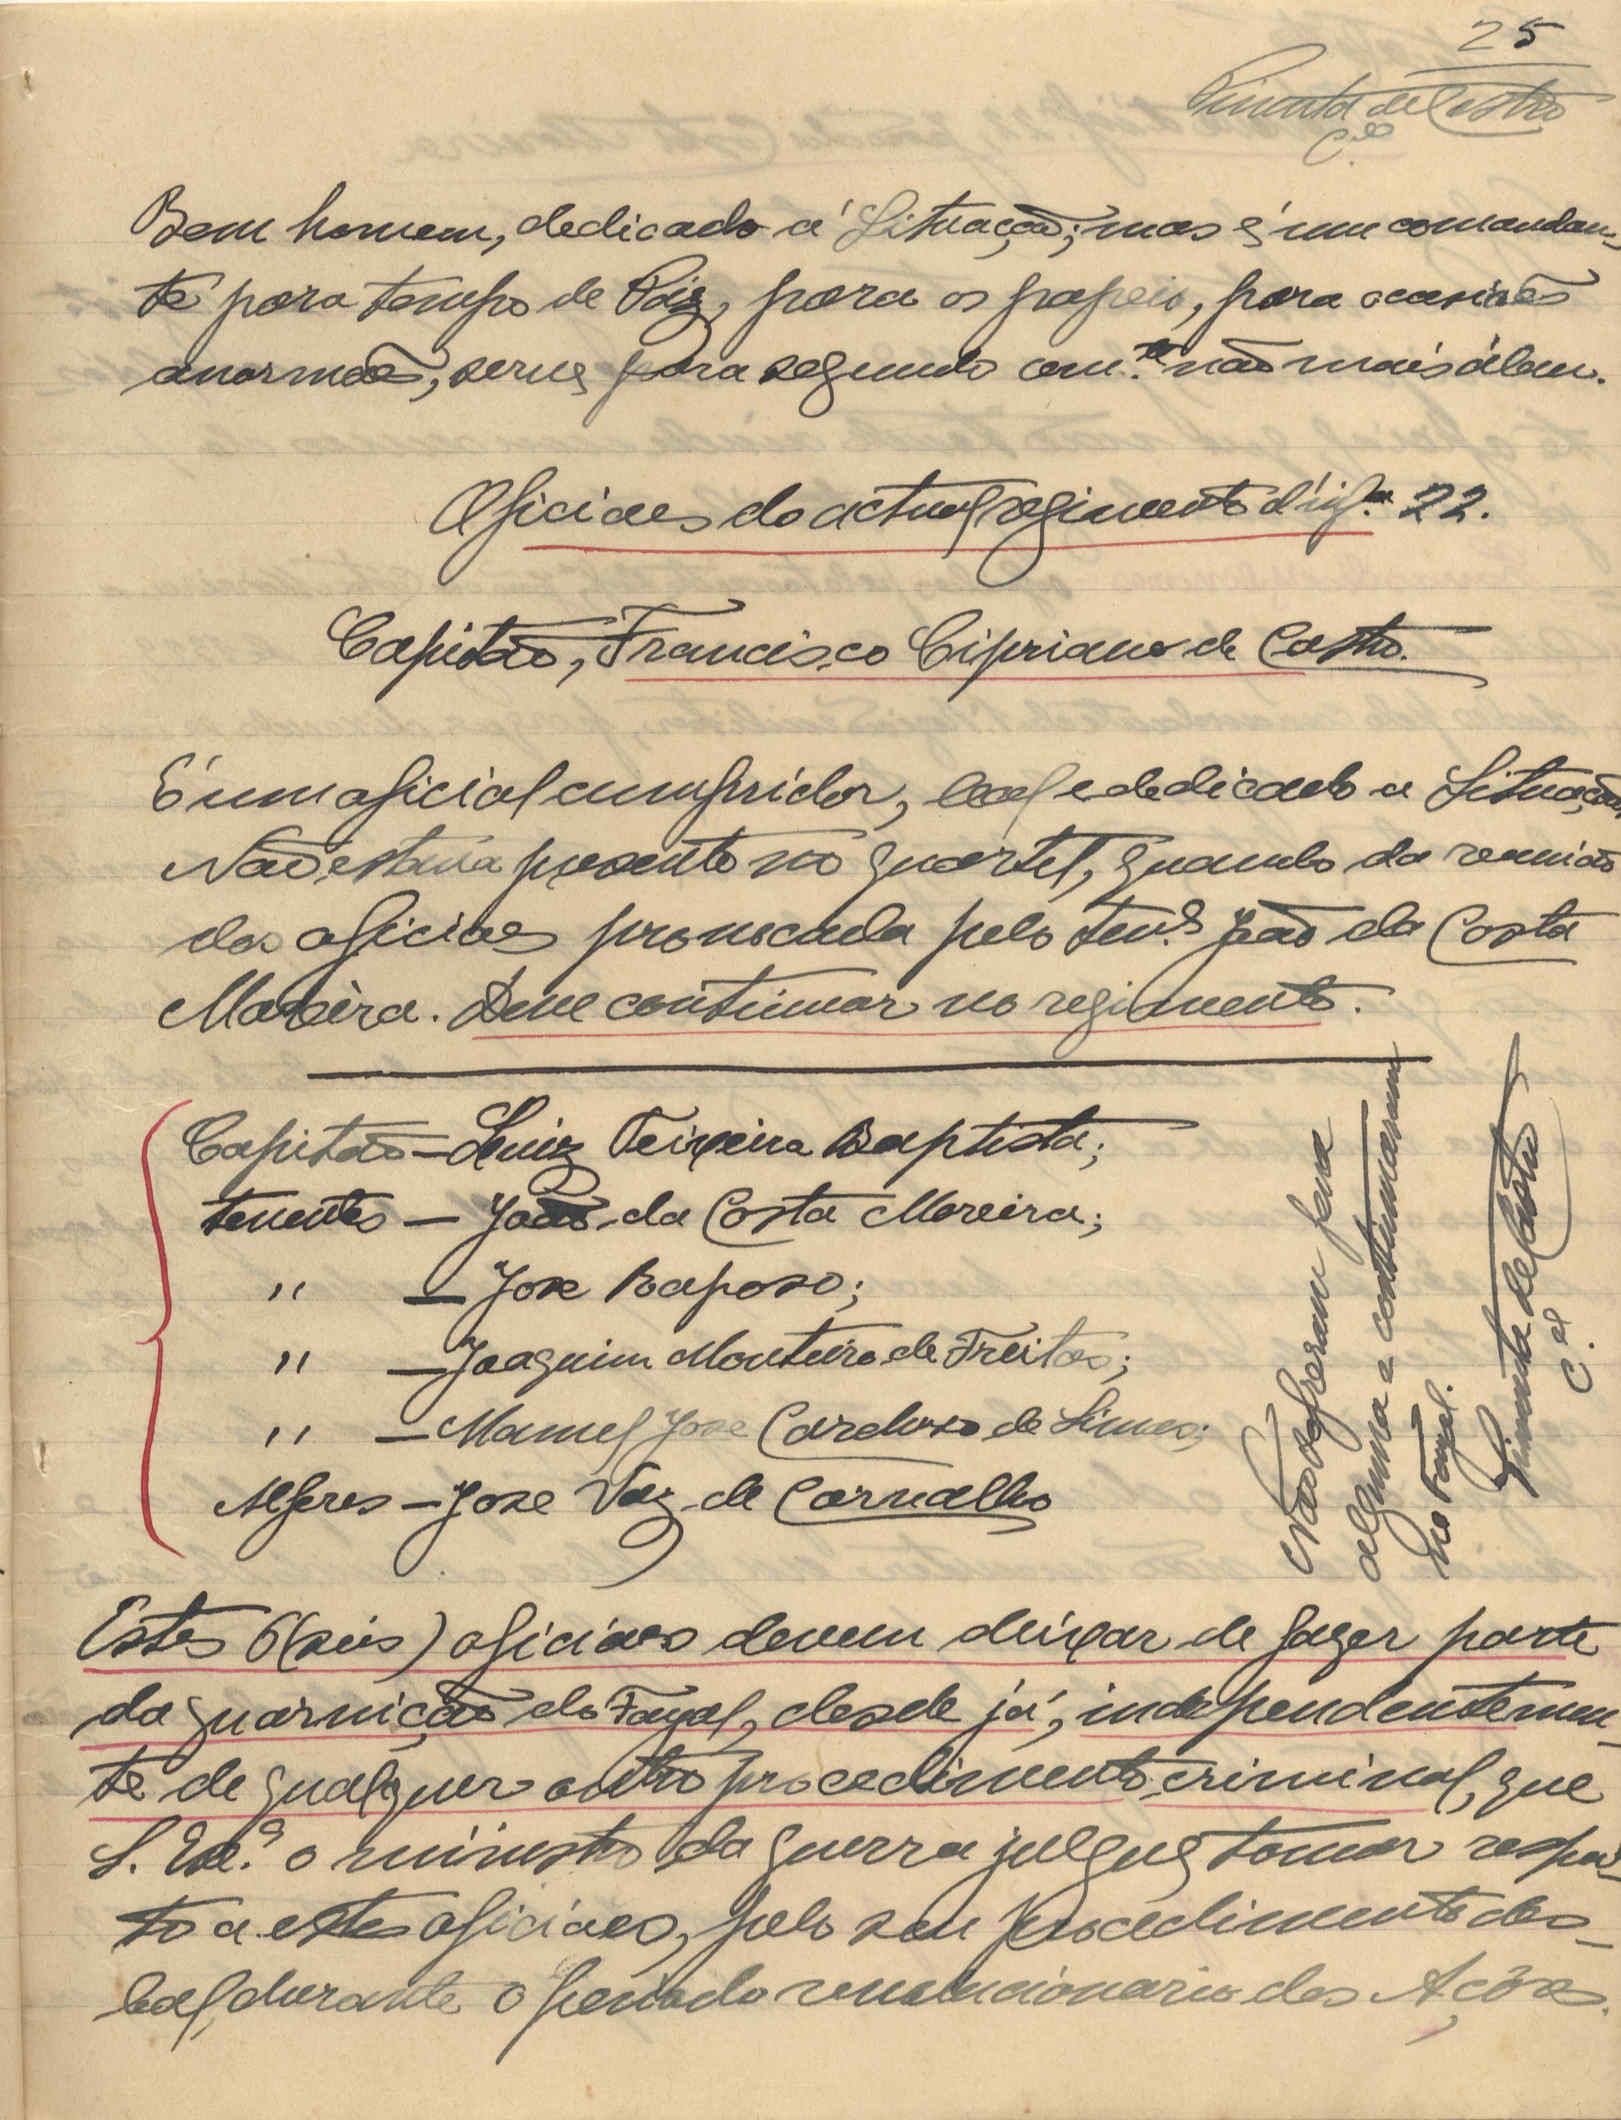 25
Pimenta de Castro
C.el
Bom homem, dedicado á Situação; mas é um comandan-
te para tempo de Páz, para os papeis, para ocasiões
anormáes, serve para segundo com.te não mais álem.
Oficiaes do actual regimento d'inf.ª 22.
Capitão, Francisco Cipriano de Castro.
É um oficial cumpridor, leal e dedicado a Situação,
Não estava presente no quartel, quando da reunião
dos oficiaes provocada pelo ten.e João da Costa
Moreira. Deve continuar no regimento.
Capitão — Luiz Teixeira Baptista;
tenentes — João da Costa Moreira;
" — Jose Raposo;
" — Joaquim Monteiro de Freitas;
" — Manuel Jose Cardoso de Simas;
Alferes — Jose Vaz de Carvalho
Não sofreram pena
alguma e continuaram
no Fayal.
Pimenta de Castro
C.el
Estes 6 (seis) oficiaes devem deixar de fazer parte
da guarnição do Fayal, desde já, independentemen-
te de qualquer outro procedimento criminal, que
S. Ex.ª o ministro da guerra julgue tomar respei-
to a estes oficiaes, pelo seu procedimento des-
leal, durante o periodo revolucionario dos Açôres.